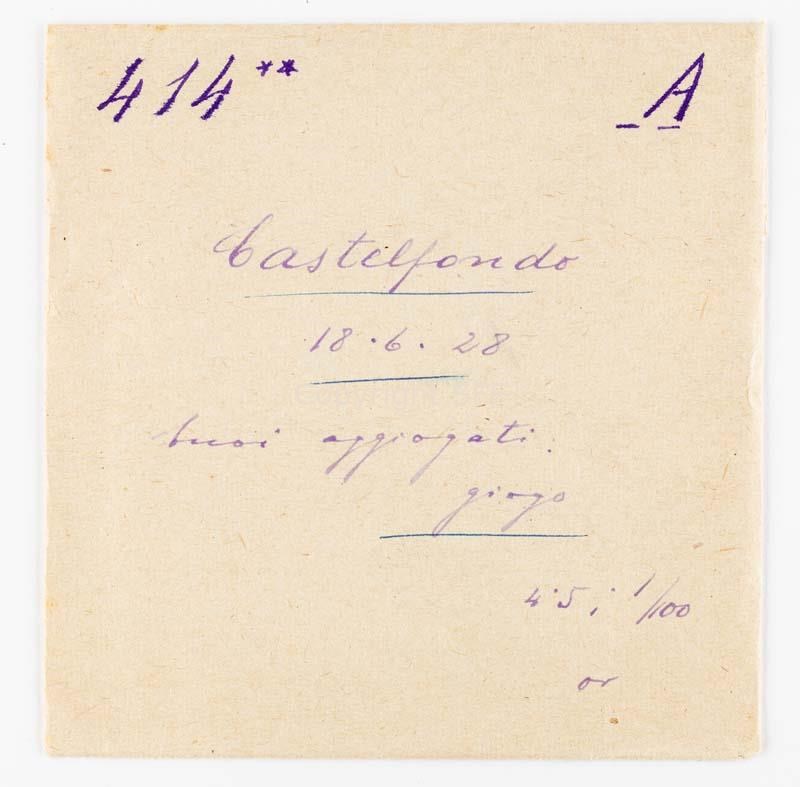 414** A
Castelfondo
18.6.28
buoi aggiogati.
giogo
4.5; 1/100
or